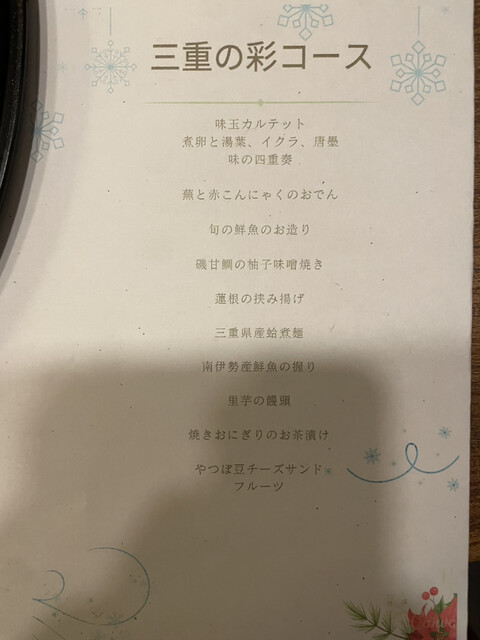 三重の彩コース
味玉カルテット
煮卵と湯葉、イクラ、唐墨
味の四重奏
蕪と赤こんにゃくのおでん
旬の鮮魚のお造り
磯甘鯛の柚子味噌焼き
蓮根の挟み揚げ
三重県産蛤煮麺
南伊勢産鮮魚の握り
里芋の饅頭
焼きおにぎりのお茶漬け
やつぼ豆チーズサンド
フルーツ